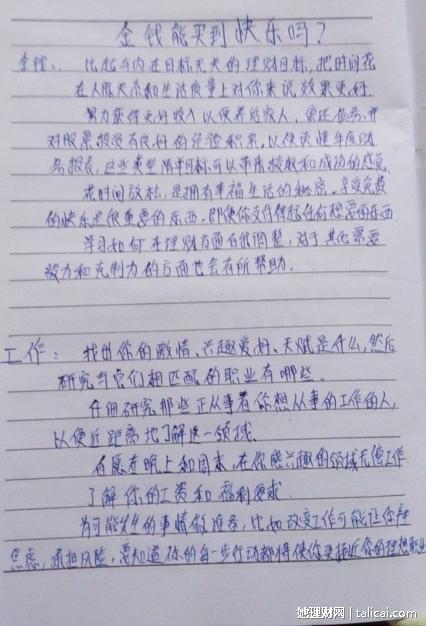 金钱能买到快乐吗？
金钱： 比起与内在目标无关的理财目标，把时间花
在人际关系和生活质量上对你来说效果更好。
努力获得更好收入以便养活家人，偿还债务，并
对股票投资有良好的经验积累，以便读懂年度财
务报表，这些类型的目标可以带来授权和成功的感觉
花时间放松，是拥有幸福生活的秘密。享受免费
的快乐是很重要的东西，即使你支付得起任何想要的东西
学习如何在理财方面自我调整，对于其他需要
毅力和克制力的方面也会有所帮助。
工作： 找出你的激情、兴趣爱好、天赋是什么，然后
研究与它们相匹配的职业有哪些。
仔细研究那些正从事着你想从事的工作的人，
以便近距离地了解这一领域。
自愿在晚上和周末，在你感兴趣的领域无偿工作
了解你的工资和福利要求
为可能发生的事情做准备，比如改变工作可能让你
焦虑，承担风险，要知道你的每一步行动都将使你更接近你的理想职业
她理财网 | talicai.com